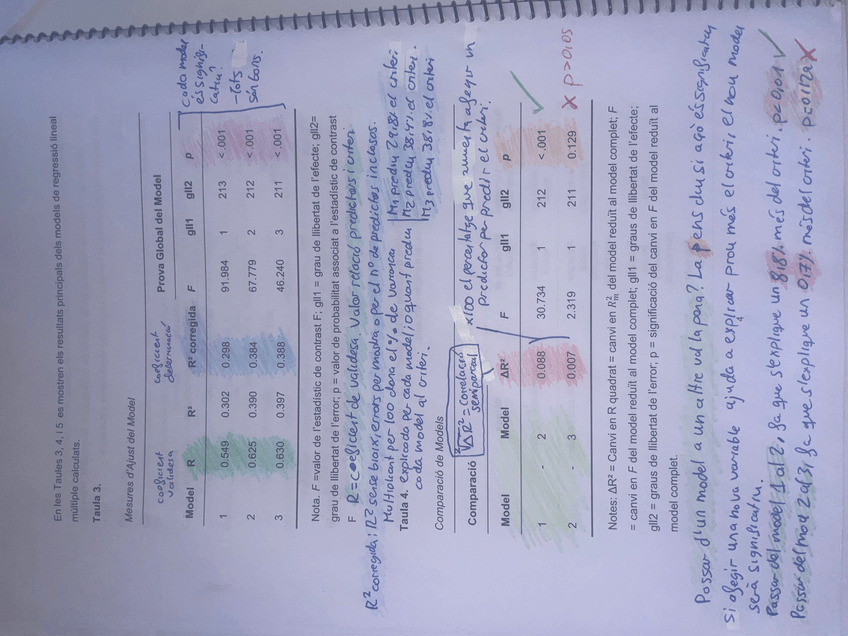 En les Taules 3, 4, i 5 es mostren els resultats principals dels models de regressió lineal
múltiple calculats.
Taula 3.
Mesures d'Ajust del Model
coeficient validesa
coeficient determinació
Prova Global del Model
Model R R² R² corregida F gll1 gll2 p
1 0.549 0.302 0.298 91.984 1 213 <.001
2 0.625 0.390 0.384 67.779 2 212 <.001
3 0.630 0.397 0.388 46.240 3 211 <.001
Cada model
és signifi-
catiu?
- Tots
són bons.
Nota. F =valor de l'estadístic de contrast F; gll1 = grau de llibertat de l'efecte; gll2=
grau de llibertat de l'error; p = valor de probabilitat associat a l'estadístic de contrast
F
R = Coeficient de validesa. Valor relació predictors i criteri
R² corregida: R² sense biaix, errors per mostra o per el nº de predictors inclosos.
Multiplicant per 100 dona el % de variança
explicada per cada model; o quant prediu
cada model al criteri.
M1 prediu 29,8% el criteri
M2 prediu 38,4% el criteri.
M3 prediu 38,8% el criteri
Taula 4.
Comparació de Models
Comparació
²√ΔR² = correlació
semiparcial
x100 el percentatge que aumenta afegir un
predictor per predir el criteri.
Model Model ΔR² F gll1 gll2 p
1 - 2 0.088 30.734 1 212 <.001 ✓
2 - 3 0.007 2.319 1 211 0.129 x p>0,05
Notes: ΔR² = Canvi en R quadrat = canvi en R²m del model reduït al model complet; F
= canvi en F del model reduït al model complet; gll1 = graus de llibertat de l'efecte;
gll2 = graus de llibertat de l'error; p = significació del canvi en F del model reduït al
model complet.
Passar d'un model a un altre val la pena? La p ens diu si açò és significatiu
Si afegir una nova variable ajuda a explicar prou més el criteri, el nou model
serà significatiu.
Passar del model 1 al 2, fa que s'explique un 8,8% més del criteri. p<0,01 ✓
Passar del model 2 al 3, fa que s'explique un 0,7% més del criteri. p=0,129 x